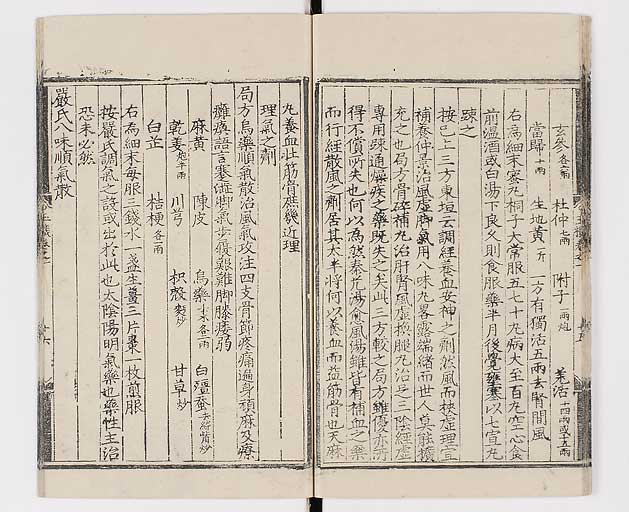 玄參各六兩 杜仲七兩 附子一兩炮 羌活十四兩或十五兩
當歸十兩 生地黃一斤 一方有獨活五兩去腎間風
右爲細末蜜丸桐子大常服五七十丸病大至百丸空心食
前溫酒或白湯下良久則食服藥半月後覺壅塞以七宣丸
疎之
按已上三方東垣云調經養血安神之劑然風而挾虛理宜
補養仲景治風虛脚氣用八味丸畧露端緒而世人莫能擴
充之也局方骨碎補丸治肝腎風虛換腿丸治足三陰經虛
專用疎通燥疾之藥旣失之矣此三方較之局方雖優亦所
得不償所失也何以爲然秦艽湯愈風湯雖皆有補血之藥
而行經散風之劑居其大半將何以養血而益筋骨也天麻
丸養血壯筋骨庶幾近理
理氣之劑
局方烏藥順氣散治風氣攻注四支骨節疼痛遍身頑麻及療
癱瘓語言蹇澁脚氣步履艱難脚膝痿弱
麻黃 陳皮 烏藥各二兩 白殭蚕炒
乾姜炮半兩 川芎 枳殼麩炒 甘草炒
白芷 桔梗各一兩
右爲細末每服三錢水一盞生薑三片棗一枚煎服
按嚴氏調氣之說或出於此也太陰陽明氣藥也藥性主治
恐未必然
嚴氏八味順氣散